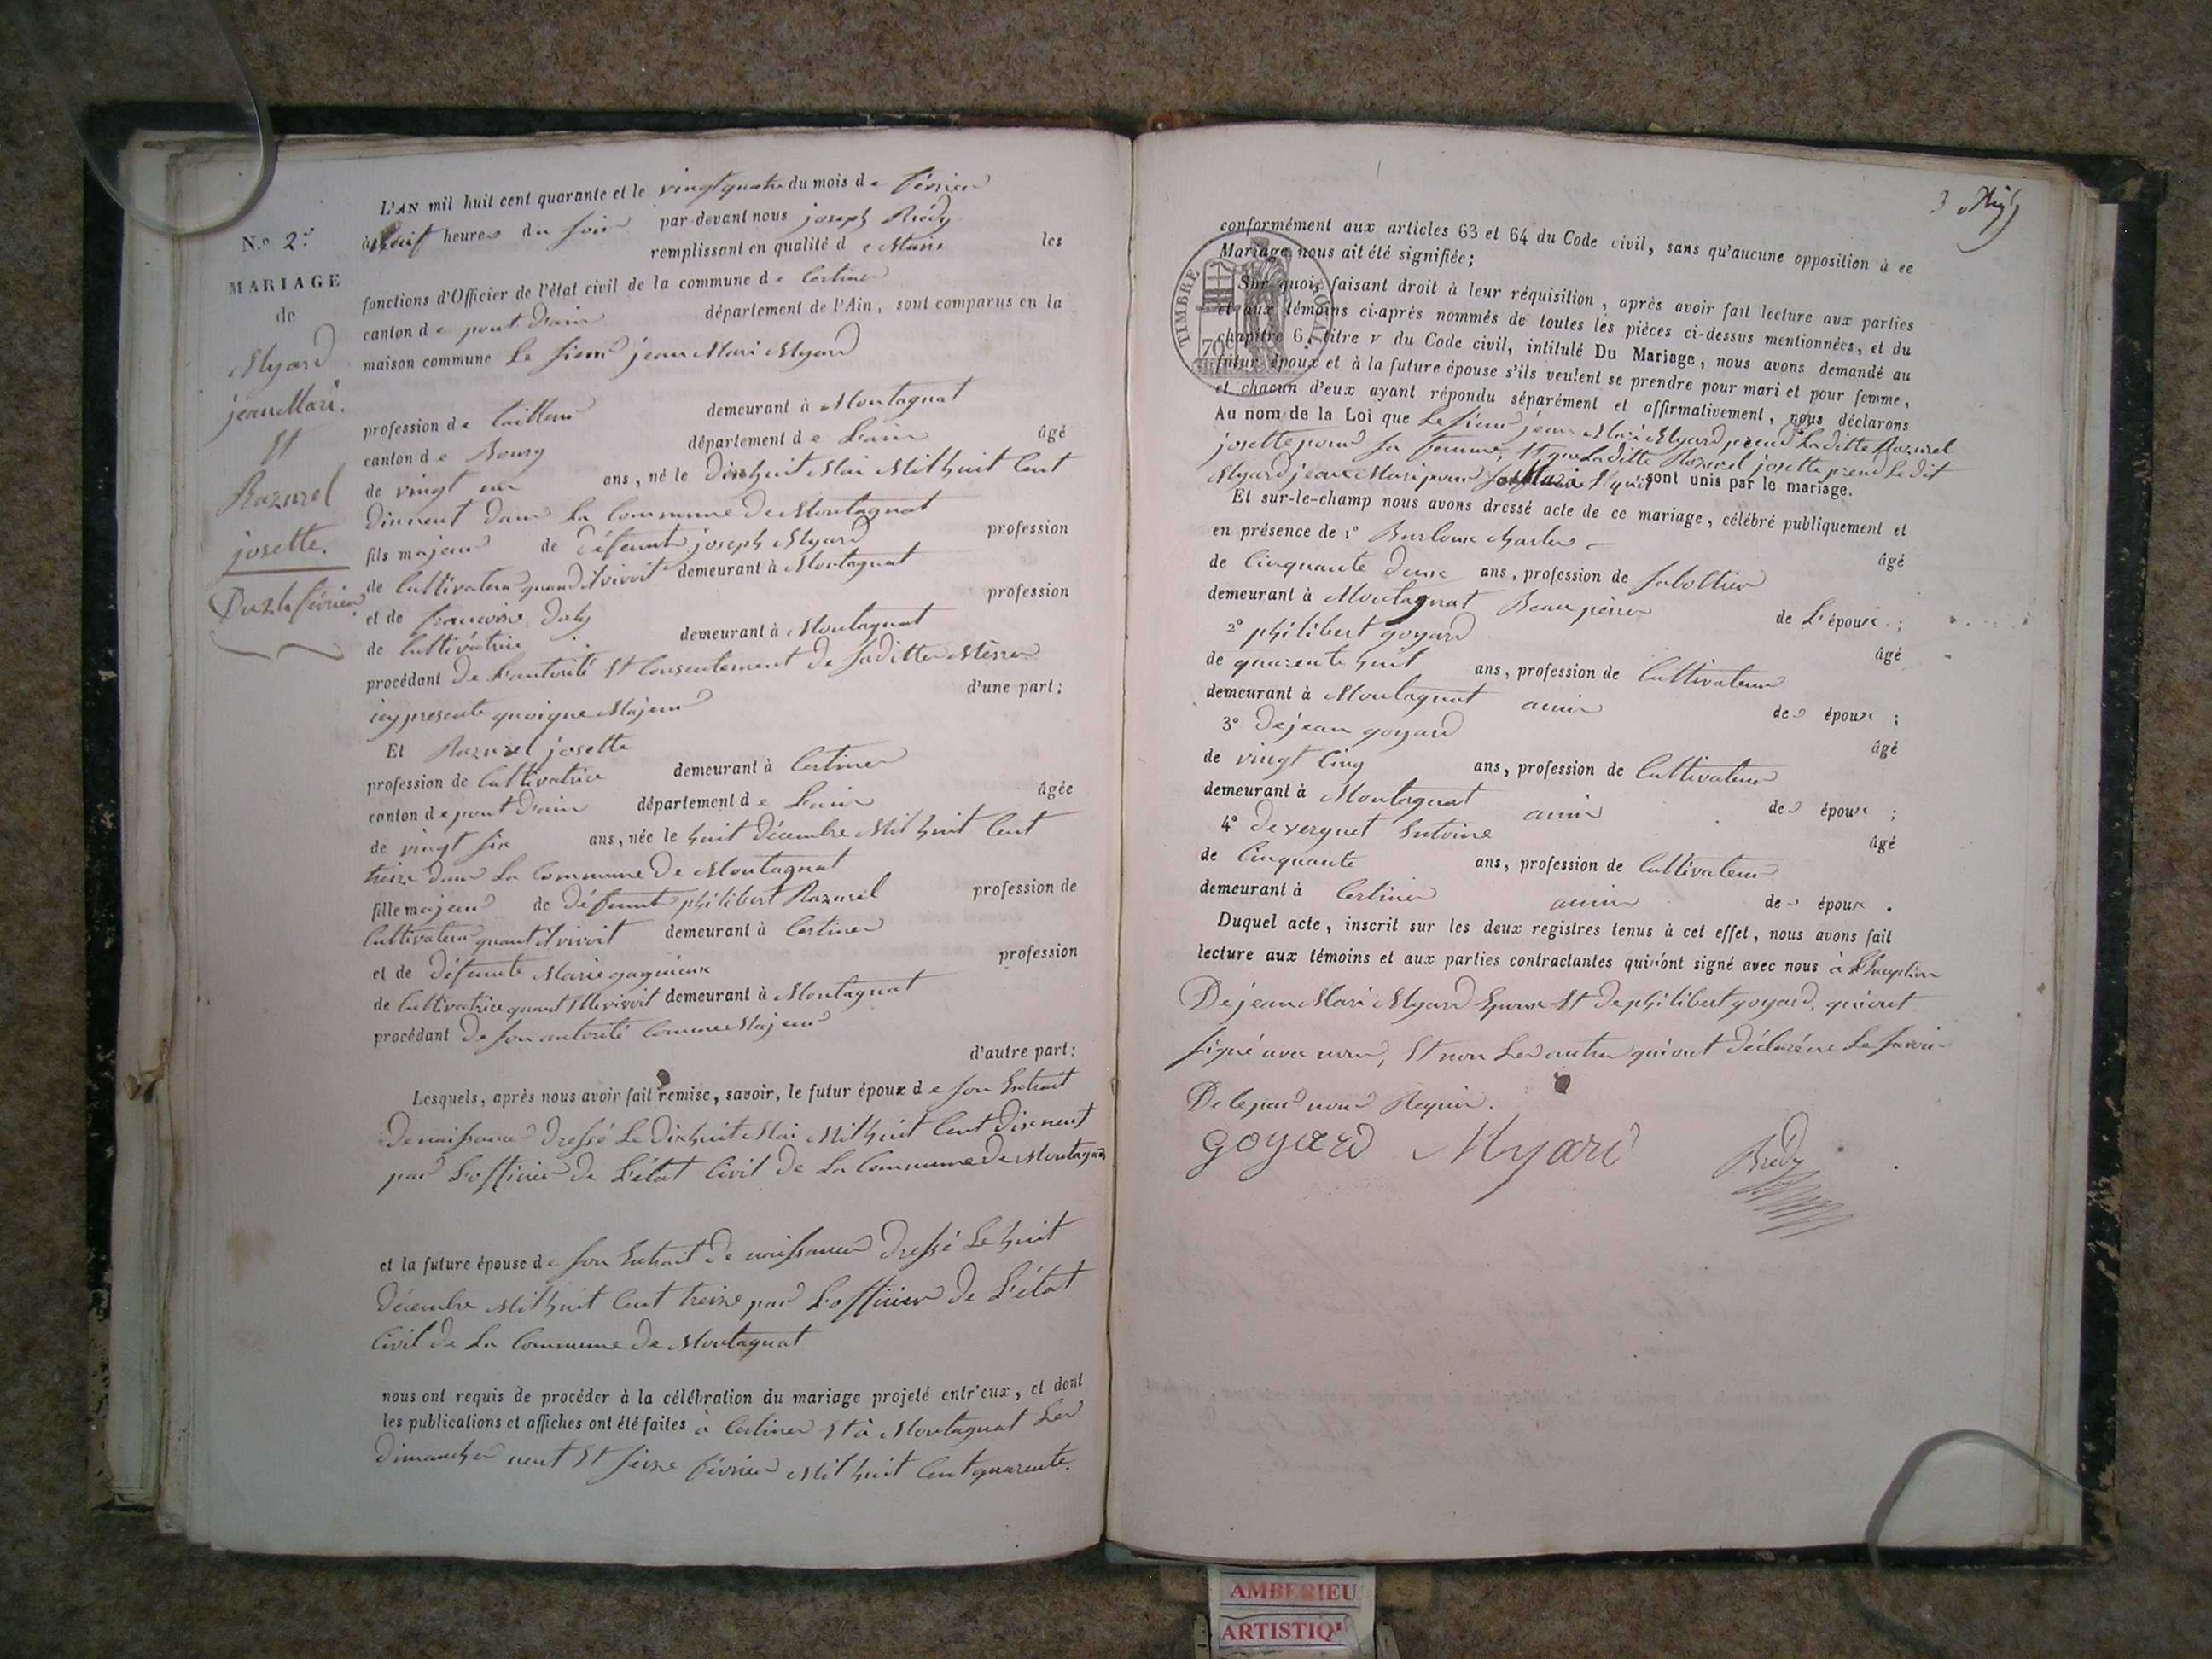 N.º 2.
MARIAGE
de
Myard
jean Mari.
Et
Razurel
josette.
Du 24 février
L'AN mil huit cent quarante et le vingt quatre du mois de février
à huit heures du soir par-devant nous joseph Brédy
remplissant en qualité de Maire les
fonctions d'Officier de l'état civil de la commune de Certines
canton de pont d'ain département de l'Ain, sont comparus en la
maison commune Le sieur jean Mari Myard
profession de tailleur demeurant à Montagnat
canton de Bourg département de L'ain âgé
de vingt un ans, né le dixhuit Mai Mil huit Cent
dixneuf dans La Commune de Montagnat
fils majeur de défunt joseph Myard profession
de Cultivateur quand il vivoit demeurant à Montagnat
et de francoise Daly profession
de Cultivatrice demeurant à Montagnat
procédant de L'autorité Et Consentement de saditte Mère
icy presente quoique Majeur d'une part;
Et Razurel josette
profession de Cultivatrice demeurant à Certines
canton de pont d'ain département de L'ain âgée
de vingt six ans, née le huit décembre Mil huit Cent
treize dans La Commune de Montagnat
fille majeure de défunt philibert Razurel profession de
Cultivateur quant il vivoit demeurant à Certines
et de défunte Marie gagnieux profession
de Cultivatrice quant Elle vivoit demeurant à Montagnat
procédant de son autorité Comme Majeure
d'autre part:
Lesquels, après nous avoir fait remise, savoir, le futur époux de son Extrait
de naissance dressé Le dixhuit Mai Mil huit Cent dixneuf
par L'officier de L'état Civil de La Commune de Montagnat
et la future épouse de son Extrait de naissance dressé Le huit
décembre Mil huit Cent treize par L'officier de L'état
Civil de La Commune de Montagnat
nous ont requis de procéder à la célébration du mariage projeté entr'eux, et dont
les publications et affiches ont été faites à Certines Et à Montagnat Les
dimanches neuf Et seize février Mil huit Cent quarante.
3
conformément aux articles 63 et 64 du Code civil, sans qu'aucune opposition à ce
Mariage nous ait été signifiée;
TIMBRE ROYAL
70
Sur quoi, faisant droit à leur réquisition, après avoir fait lecture aux parties
et aux témoins ci-après nommés de toutes les pièces ci-dessus mentionnées, et du
chapitre 6, titre v du Code civil, intitulé Du Mariage, nous avons demandé au
futur époux et à la future épouse s'ils veulent se prendre pour mari et pour femme,
et chacun d'eux ayant répondu séparément et affirmativement, nous déclarons
Au nom de la Loi que Le sieur jean Mari Myard prend La ditte Razurel
josette pour sa femme, Et que La ditte Razurel josette prend Le dit
Myard jean Mari pour son Mari Et qu'ils sont unis par le mariage.
Et sur-le-champ nous avons dressé acte de ce mariage, célébré publiquement et
en présence de 1º Charles
de Cinquante deux ans, profession de sabottier âgé
demeurant à Montagnat Beau père de L'épouse;
2º philibert goyard âgé
de quarente huit ans, profession de Cultivateur
demeurant à Montagnat ami des époux;
3º de jean goyard âgé
de vingt Cinq ans, profession de Cultivateur
demeurant à Montagnat ami des époux;
4º de verguet Entoine âgé
de Cinquante ans, profession de Cultivateur
demeurant à Certines ami des époux.
Duquel acte, inscrit sur les deux registres tenus à cet effet, nous avons fait
lecture aux témoins et aux parties contractantes qui n'ont signé avec nous à L'Exeption
De jean Mari Myard Epoux Et de philibert goyard, qui ont
signé avec nous, Et non Les autres qui ont déclaré ne Le savoir
De Ce par nous Requis.
goyard Myard Brédy
AMBERIEU
ARTISTIQ